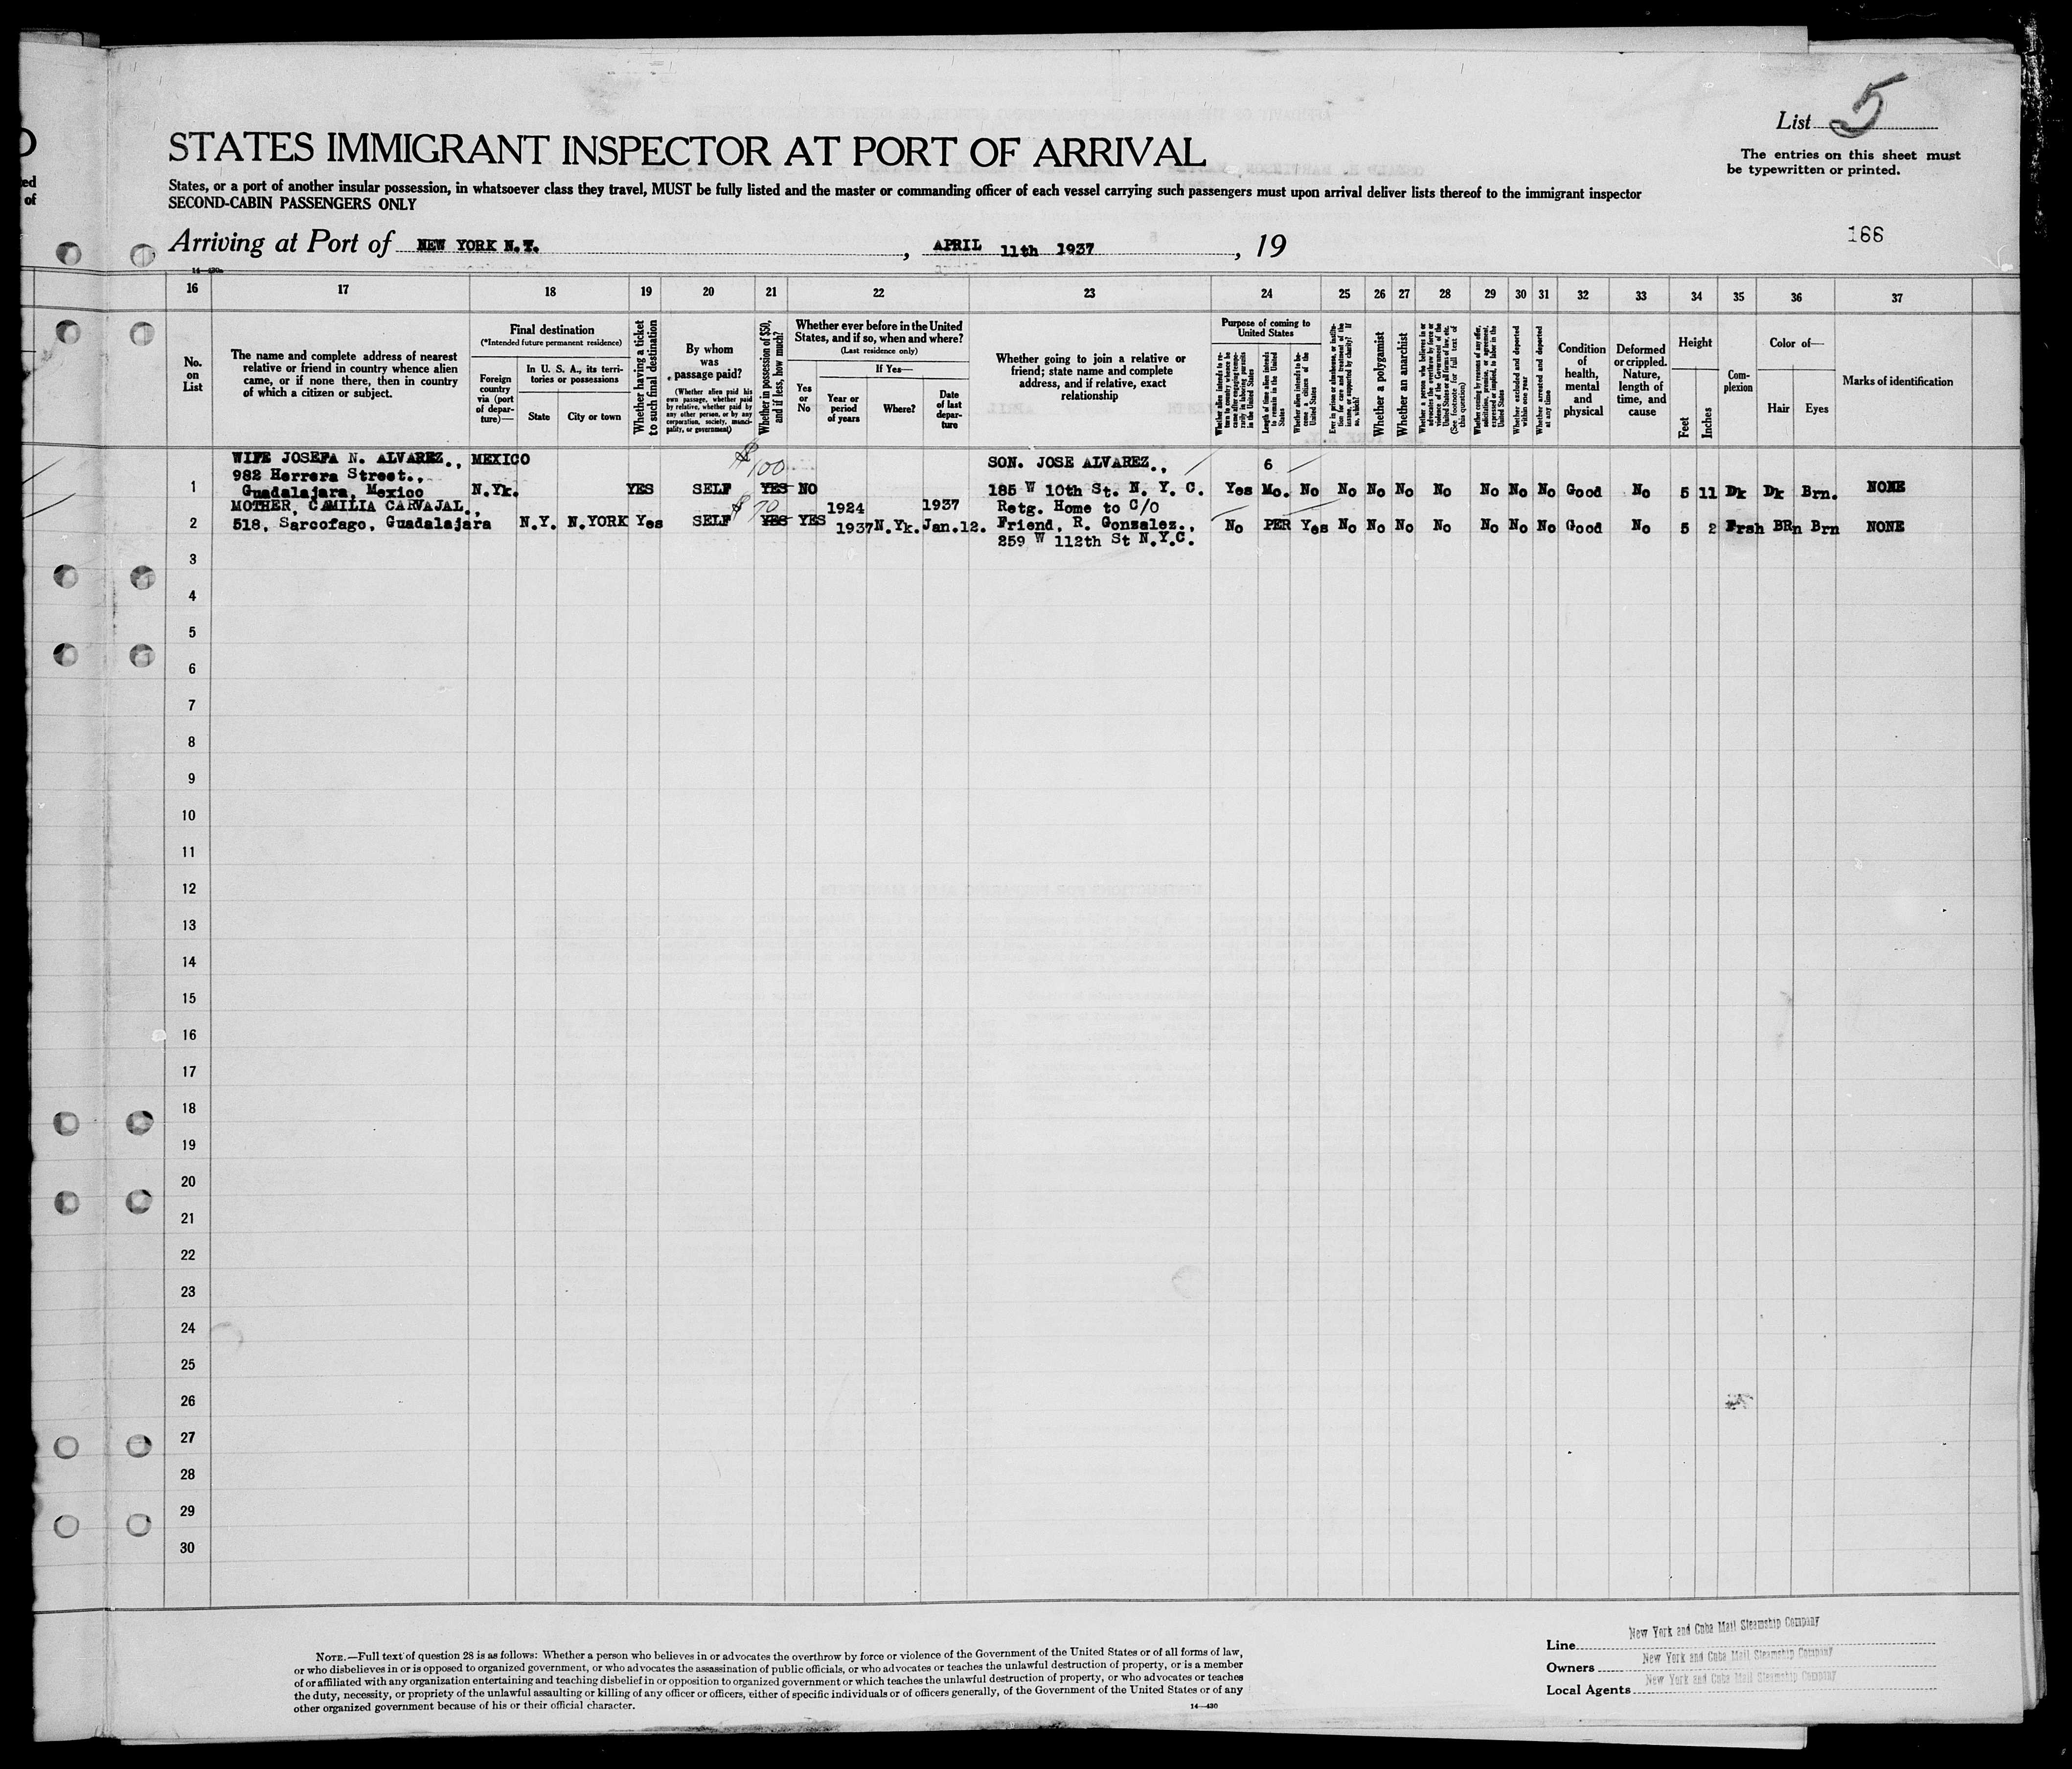 List 5
STATES IMMIGRANT INSPECTOR AT PORT OF ARRIVAL
The entries on this sheet must
be typewritten or printed.
States, or a port of another insular possession, in whatsoever class they travel, MUST be fully listed and the master or commanding officer of each vessel carrying such passengers must upon arrival deliver lists thereof to the immigrant inspector
SECOND-CABIN PASSENGERS ONLY
ed
of
Arriving at Port of NEW YORK N.Y. , APRIL 11th 1937 , 19
166
16 17 18 19 20 21 22 23 24 25 26 27 28 29 30 31 32 33 34 35 36 37
No.
on
List
The name and complete address of nearest
relative or friend in country whence alien
came, or if none there, then in country
of which a citizen or subject.
Final destination
(*Intended future permanent residence)
Foreign
country
via (port
of depar-
ture)—
In U. S. A., its terri-
tories or possessions
State City or town
Whether having a ticket
to such final destination
By whom
was
passage paid?
(Whether alien paid his
own passage, whether paid
by relative, whether paid by
any other person, or by any
corporation, society, munici-
pality, or government)
Whether in possession of $50,
and if less, how much?
Whether ever before in the United
States, and if so, when and where?
(Last residence only)
Yes
or
No
If Yes—
Year or
period
of years
Where?
Date
of last
depar-
ture
Whether going to join a relative or
friend; state name and complete
address, and if relative, exact
relationship
Purpose of coming to
United States
Whether alien intends to re-
turn to country whence he
came after engaging tempo-
rarily in laboring pursuits
in the United States
Length of time alien intends
to remain in the United
States
Whether alien intends to be-
come a citizen of the
United States
Ever in prison or almshouse, or institu-
tion for care and treatment of the
insane, or supported by charity? If
so, which?
Whether a polygamist
Whether an anarchist
Whether a person who believes in or
advocates the overthrow by force or
violence of the Government of the
United States or all forms of law, etc.
(See footnote for full text of
this question)
Whether coming by reasons of any offer,
solicitation, promise, or agreement,
expressed or implied, to labor in the
United States
Whether excluded and deported
within one year
Whether arrested and deported
at any time
Condition
of
health,
mental
and
physical
Deformed
or crippled.
Nature,
length of
time, and
cause
Height
Feet
Inches
Com-
plexion
Color of—
Hair Eyes
Marks of identification
WIFE JOSEFA N. ALVAREZ., MEXICO $100 SON. JOSE ALVAREZ., 6
982 Herrera Street.,
1 Guadalajara, Mexico N.Yk. YES SELF YES NO 185 W 10th St. N. Y. C. Yes Mo. No No No No No No No No Good No 5 11 Dk Dk Brn. NONE
MOTHER, CAMILIA CARVAJAL., $70 1924 1937 Retg. Home to C/O
2 518, Sarcofago, Guadalajara N.Y. N.YORK Yes SELF YES YES 1937 N.Yk. Jan.12. Friend, R. Gonzalez., No PER Yes No No No No No No No Good No 5 2 Frsh BRn Brn NONE
259 W 112th St N.Y.C.
3
4
5
6
7
8
9
10
11
12
13
14
15
16
17
18
19
20
21
22
23
24
25
26
27
28
29
30
NOTE.—Full text of question 28 is as follows: Whether a person who believes in or advocates the overthrow by force or violence of the Government of the United States or of all forms of law,
or who disbelieves in or is opposed to organized government, or who advocates the assassination of public officials, or who advocates or teaches the unlawful destruction of property, or is a member
of or affiliated with any organization entertaining and teaching disbelief in or opposition to organized government or which teaches the unlawful destruction of property, or who advocates or teaches
the duty, necessity, or propriety of the unlawful assaulting or killing of any officer or officers, either of specific individuals or of officers generally, of the Government of the United States or of any
other organized government because of his or their official character.
14—430
Line New York and Cuba Mail Steamship Company
Owners New York and Cuba Mail Steamship Company
Local Agents New York and Cuba Mail Steamship Company